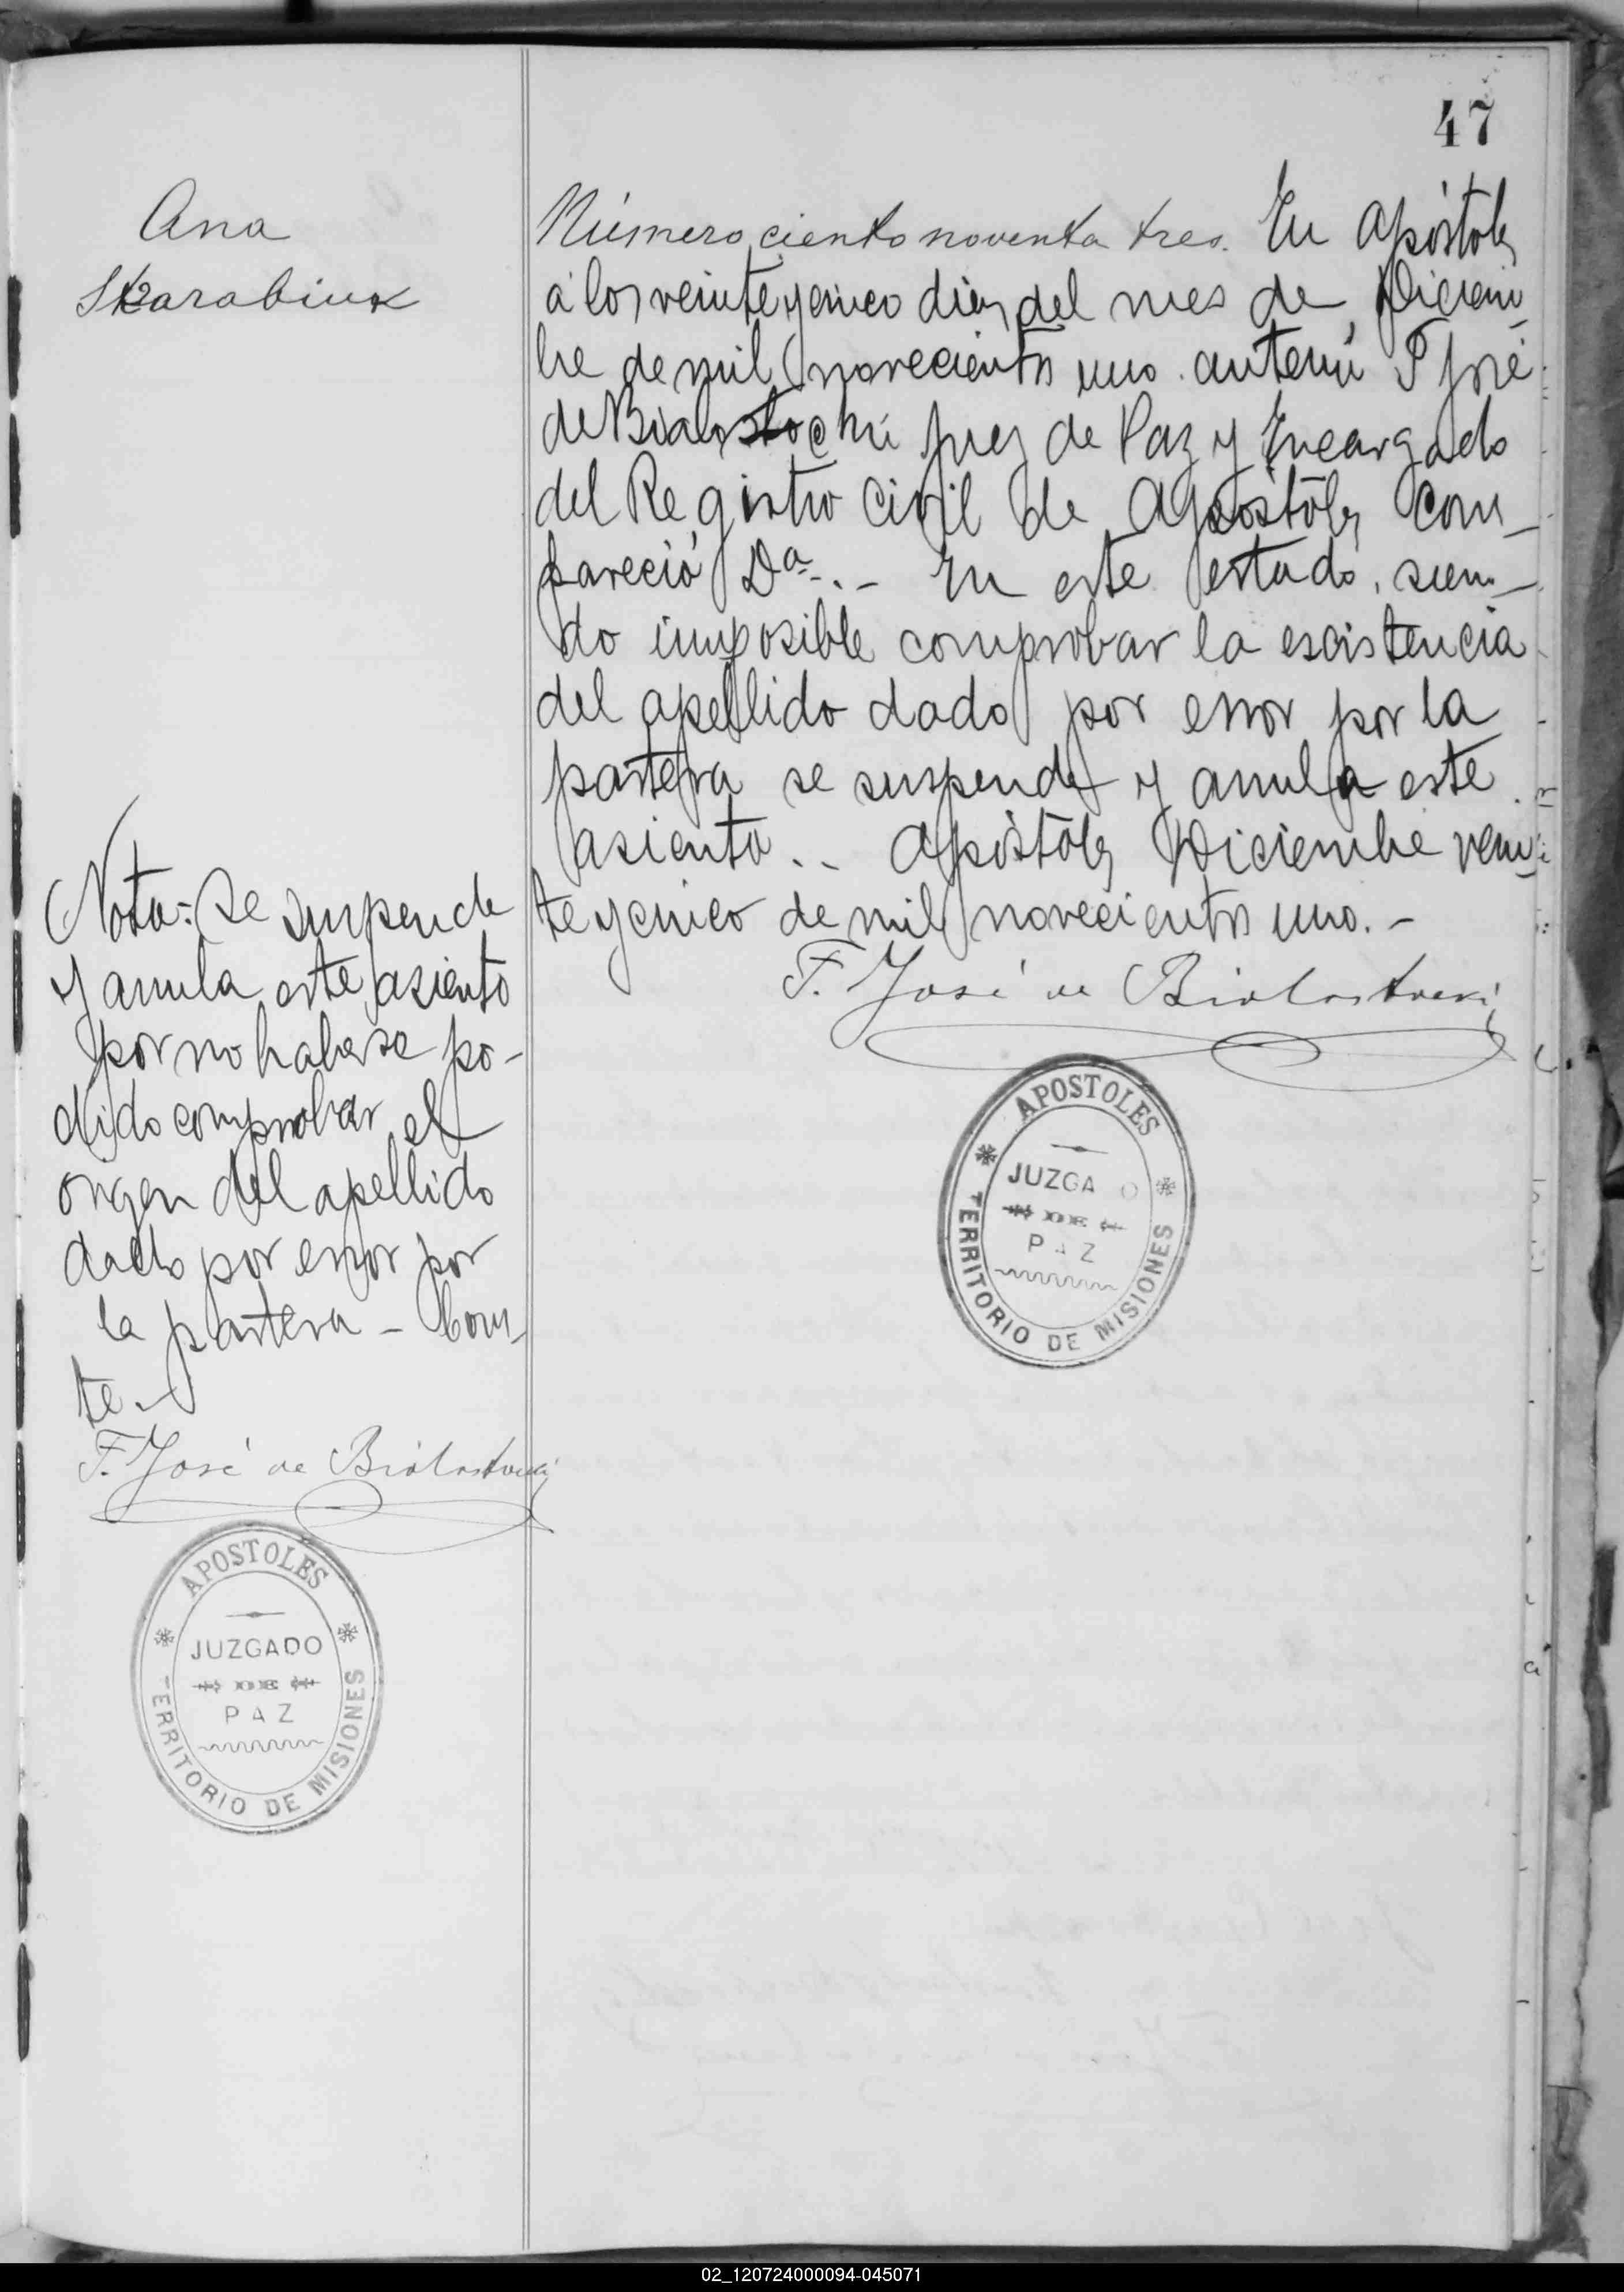 47
Ana
Skarabiuk
Número ciento noventa tres. En Apóstoles
á los veinte y cinco dias del mes de Diciem
bre de mil novecientos uno. ante mi F José
de Bialostocki Juez de Paz y Encargado
del Registro Civil de Apóstoles com-
pareció Da.- En este estado, sien-
do imposible comprobar la escistencia
del apellido dado por error por la
partera se suspende y anula este
asiento.- Apóstoles Diciembre vein-
te y cinco de mil novecientos uno.-
F. José de Bialostocki
APOSTOLES
JUZGADO
DE
PAZ
TERRITORIO DE MISIONES
Nota: Se suspende
y anula este asiento
por no haberse po-
dido comprobar el
origen del apellido
dado por error por
la partera - Cons-
te.-
F. José de Bialostocki
APOSTOLES
JUZGADO
DE
PAZ
TERRITORIO DE MISIONES
02_120724000094-045071